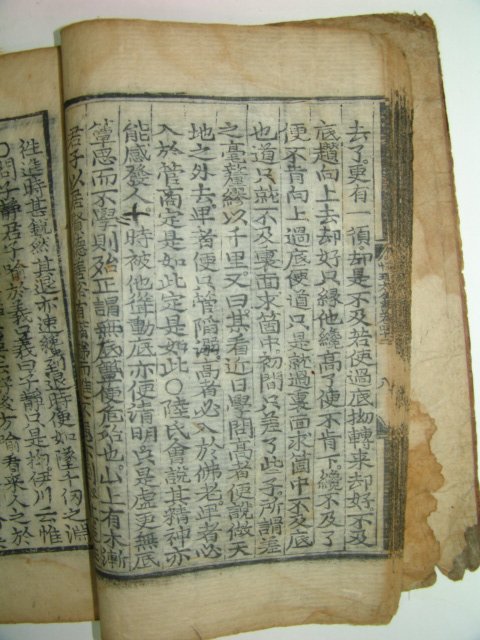 去了更有一領却是不及若使過底拗轉來却好不及
底趲向上去却好只緣他纔高了便不肯下纔不及了
便不肯向上過底便道只是就過裏面求箇中不及底
也道只就不及裏面求箇中初間只差了些子所謂差
之毫釐繆以千里又曰某看近日學問高者便說做天
地之外去卑者便只管陷溺高者必入於佛老卑者必
入於管商定是如此定是如此○陸氏會說其精神亦
能感發人一時被他聳動底亦便清明只是虛更無底
簟思而不學則殆正謂無底簟便危殆也山上有木漸
君子以居賢德善
往進時甚銳然其退亦速纔到退時便如墜千仞之淵
○問子靜君子喻於義口義曰子靜只是拗伊川云惟
後方喻看來人之於